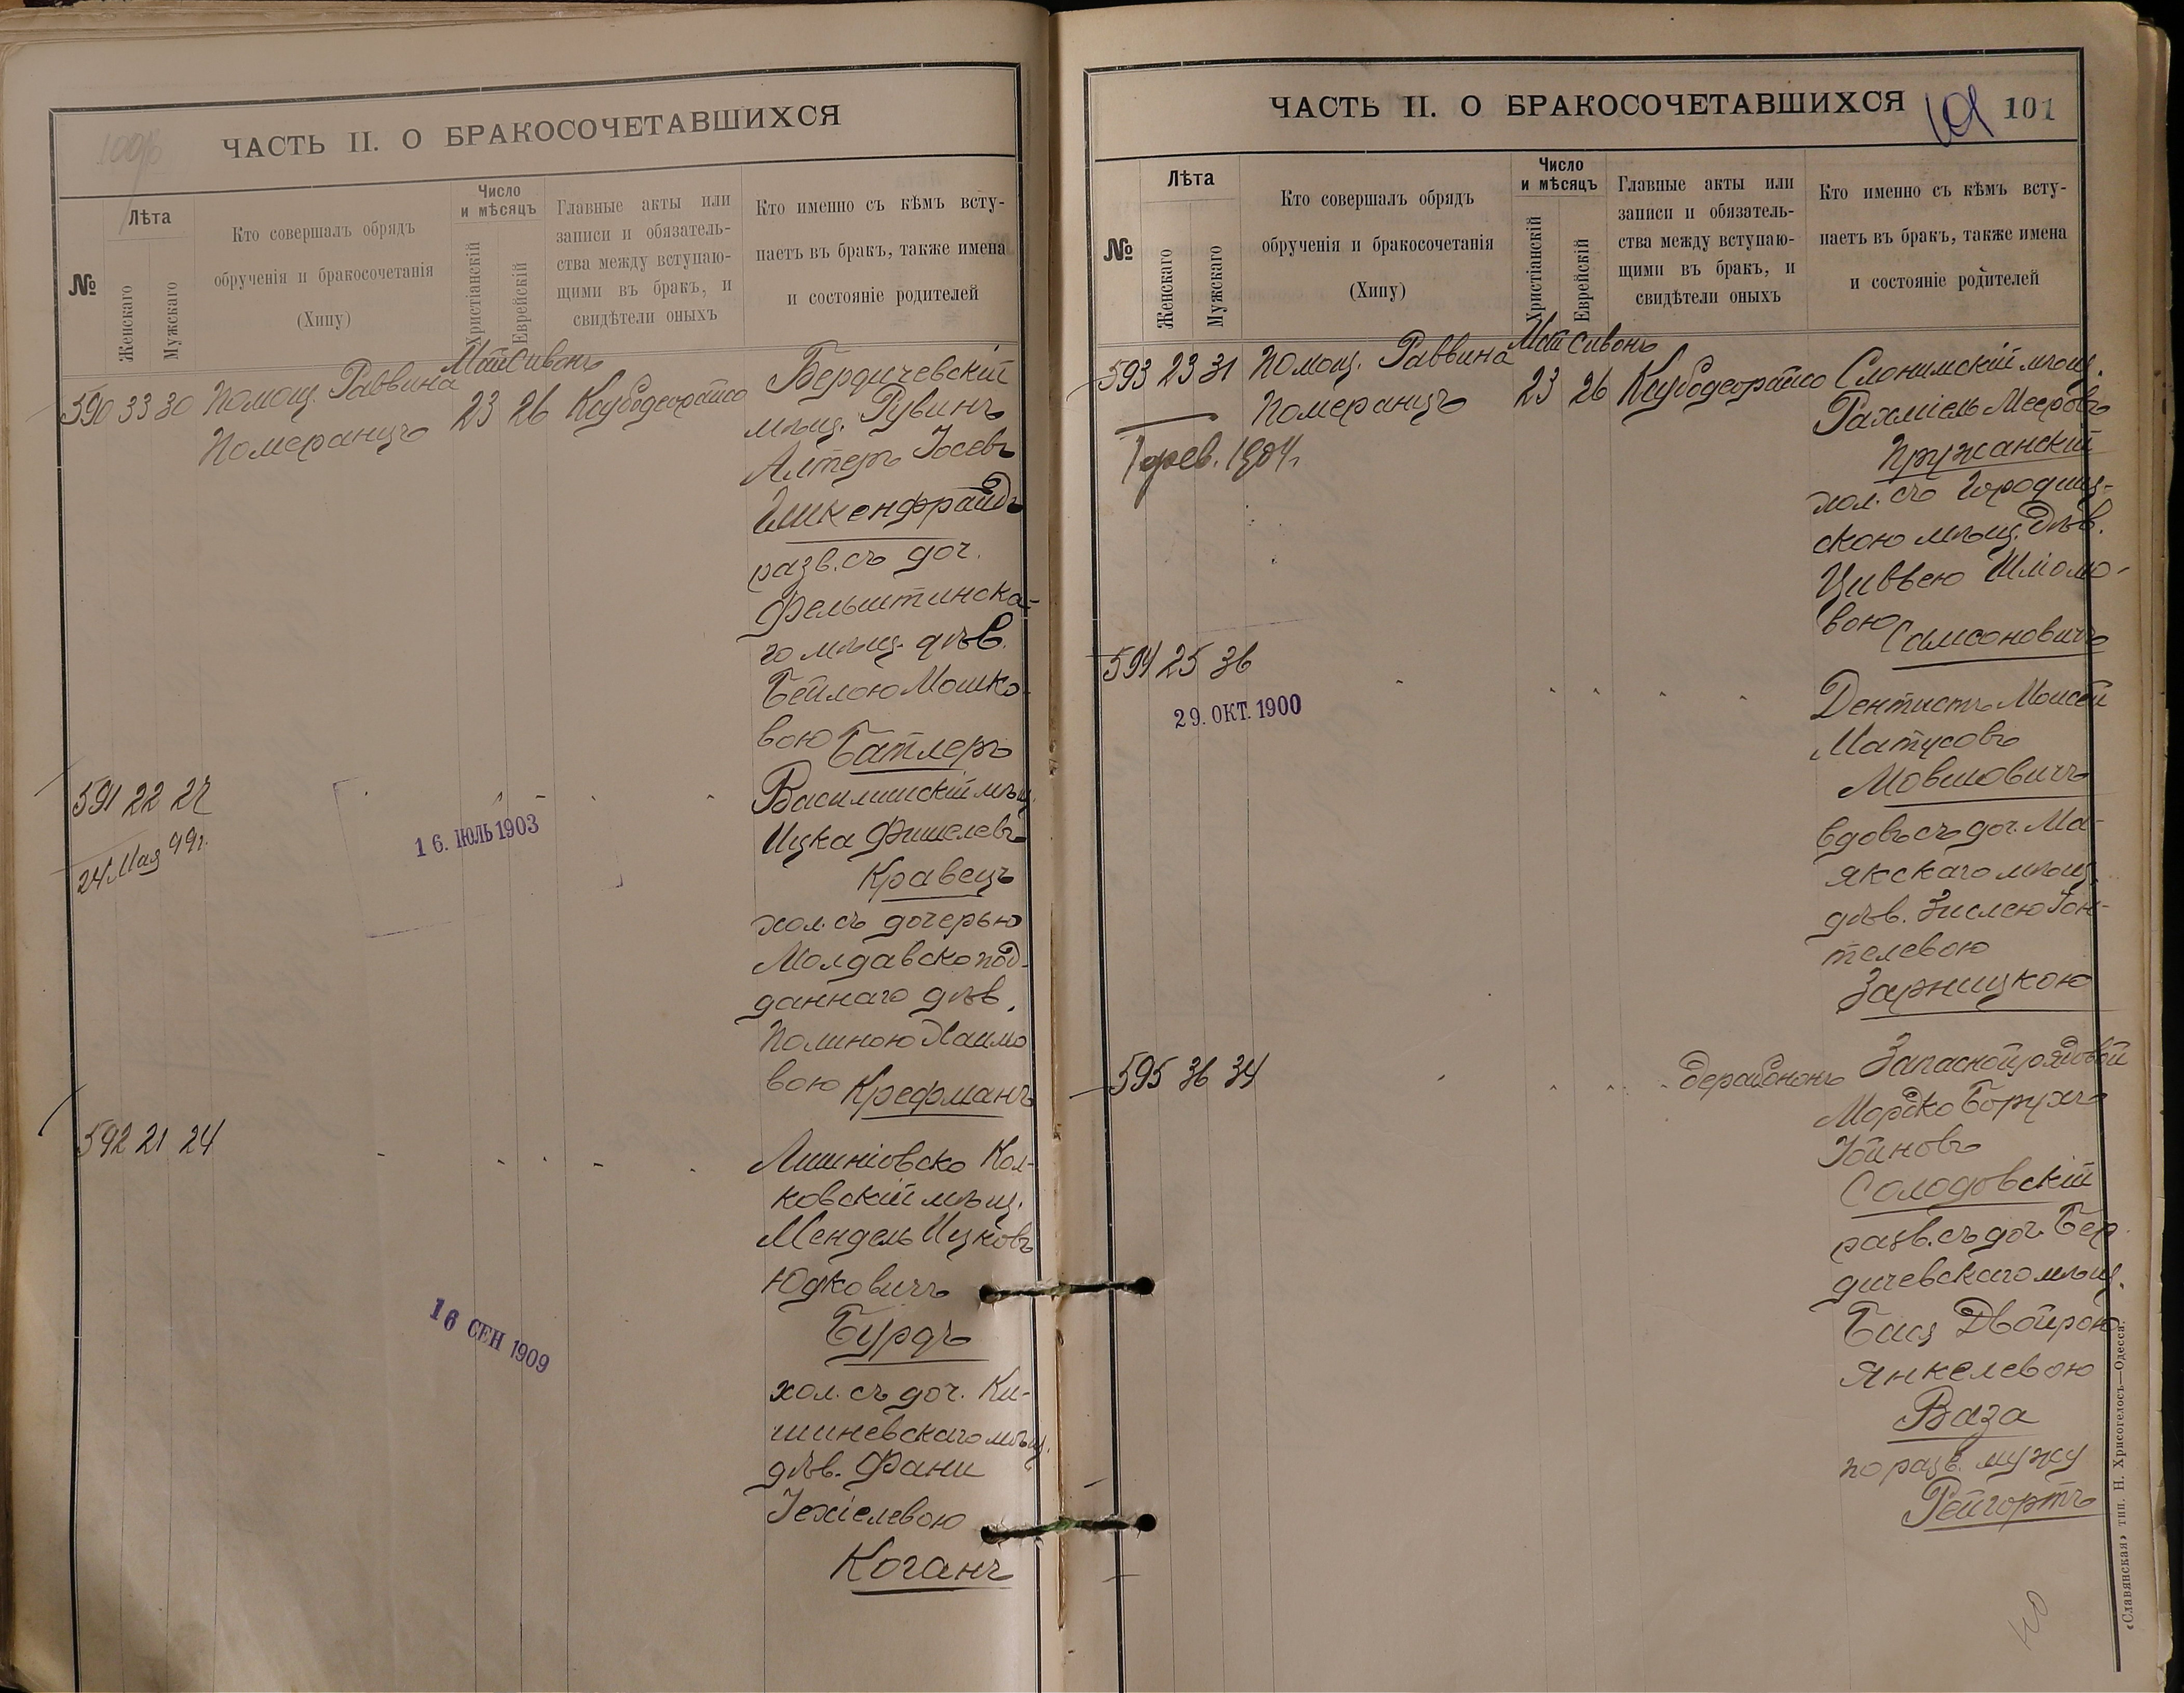 ЧАСТЬ II. О БРАКОСОЧЕТАВШИХСЯ
№
Лѣта
Женскаго
Мужскаго
Кто совершалъ обрядъ
обрученія и бракосочетанія
(Хипу)
Число
и мѣсяцъ
Христіанскій
Еврейскій
Главные акты или
записи и обязатель-
ства между вступаю-
щими въ бракъ, и
свидѣтели оныхъ
Кто именно съ кѣмъ всту-
паетъ въ бракъ, также имена
и состояніе родителей
590 33 30 Помощ. Раввина
Померанцъ
Май Сивонъ
23 26
Бердичевскій
мѣщ. Рувинъ
Алтеръ Іосевъ
разв. съ доч.
Фельштинска-
го мѣщ. дѣв.
Бейлою Мошко-
вою Батлеръ
591 22 27
24 Мая 99 г.
16. ІЮЛЬ 1903
Василишскій мѣщ.
Ицка Фишелевъ
Кравецъ
хол. съ дочерью
Молдавскопод-
даннаго дѣв.
Полиною Хаимо
вою Крефманъ
592 21 24
16 СЕН 1909
Лишніовско Кол-
ковскій мѣщ.
Мендель Ицковъ
Юдковичъ
Бурдъ
хол. съ доч. Ки-
шиневскаго мѣщ.
дѣв. Фани
Іехіелевою
Коганъ
ЧАСТЬ II. О БРАКОСОЧЕТАВШИХСЯ
101 101
№
Лѣта
Женскаго
Мужскаго
Кто совершалъ обрядъ
обрученія и бракосочетанія
(Хипу)
Число
и мѣсяцъ
Христіанскій
Еврейскій
Главные акты или
записи и обязатель-
ства между вступаю-
щими въ бракъ, и
свидѣтели оныхъ
Кто именно съ кѣмъ всту-
паетъ въ бракъ, также имена
и состояніе родителей
593 23 31 Помощ. Раввина
Померанцъ
Май Сивонъ
23 26
1 фев. 1904 г.
Слонимскій мѣщ.
Рахміель Мееровъ
Пружанскій
хол. съ Городищ-
скою мѣщ. дѣв.
Цивьею Шліомо-
вою Самсоновичъ
594 25 36
29. ОКТ. 1900
Дентистъ Моисей
Матусовъ
Мовшовичъ
вдов. съ доч. Ма-
якскаго мѣщ.
дѣв. Зислею Гон-
телевою
Зарницкою
595 36 34
Запасной рядовой
Мордко Борухъ
Солодовскій
разв. съ доч. Бер
дичевскаго мѣщ.
Бася Двойрою
Янкелевою
Ваза
по разв. мужу
Рейгортъ
«Славянская» тип. Н. Хрисогелосъ—Одесса.